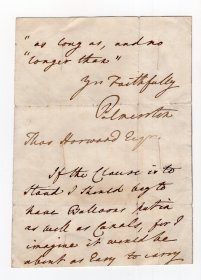 "as long as, and no
"longer than"
Yrs Faithfully
Palmerston
Thos Horward Esqr
If the Clause is to
stand I should beg to
have Balloons put in
as well as Canals, for I
imagine it would be
about as Easy to carry